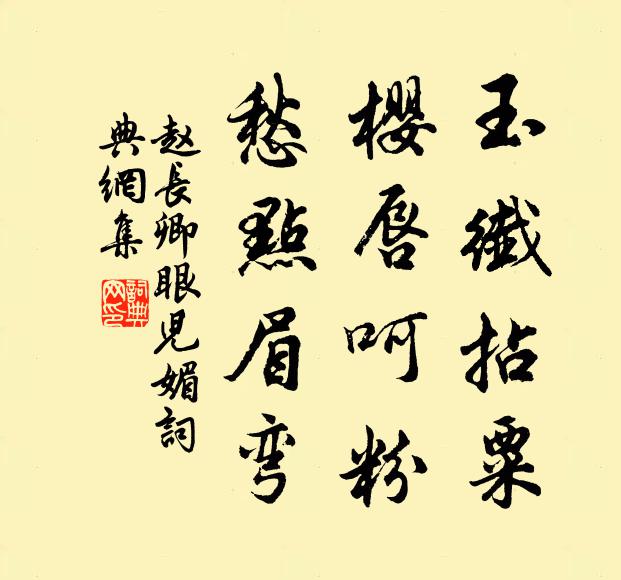 玉纖拈粟
櫻唇呵粉
愁點眉彎
赵長卿眼児媚詞
典網集
詞典网印